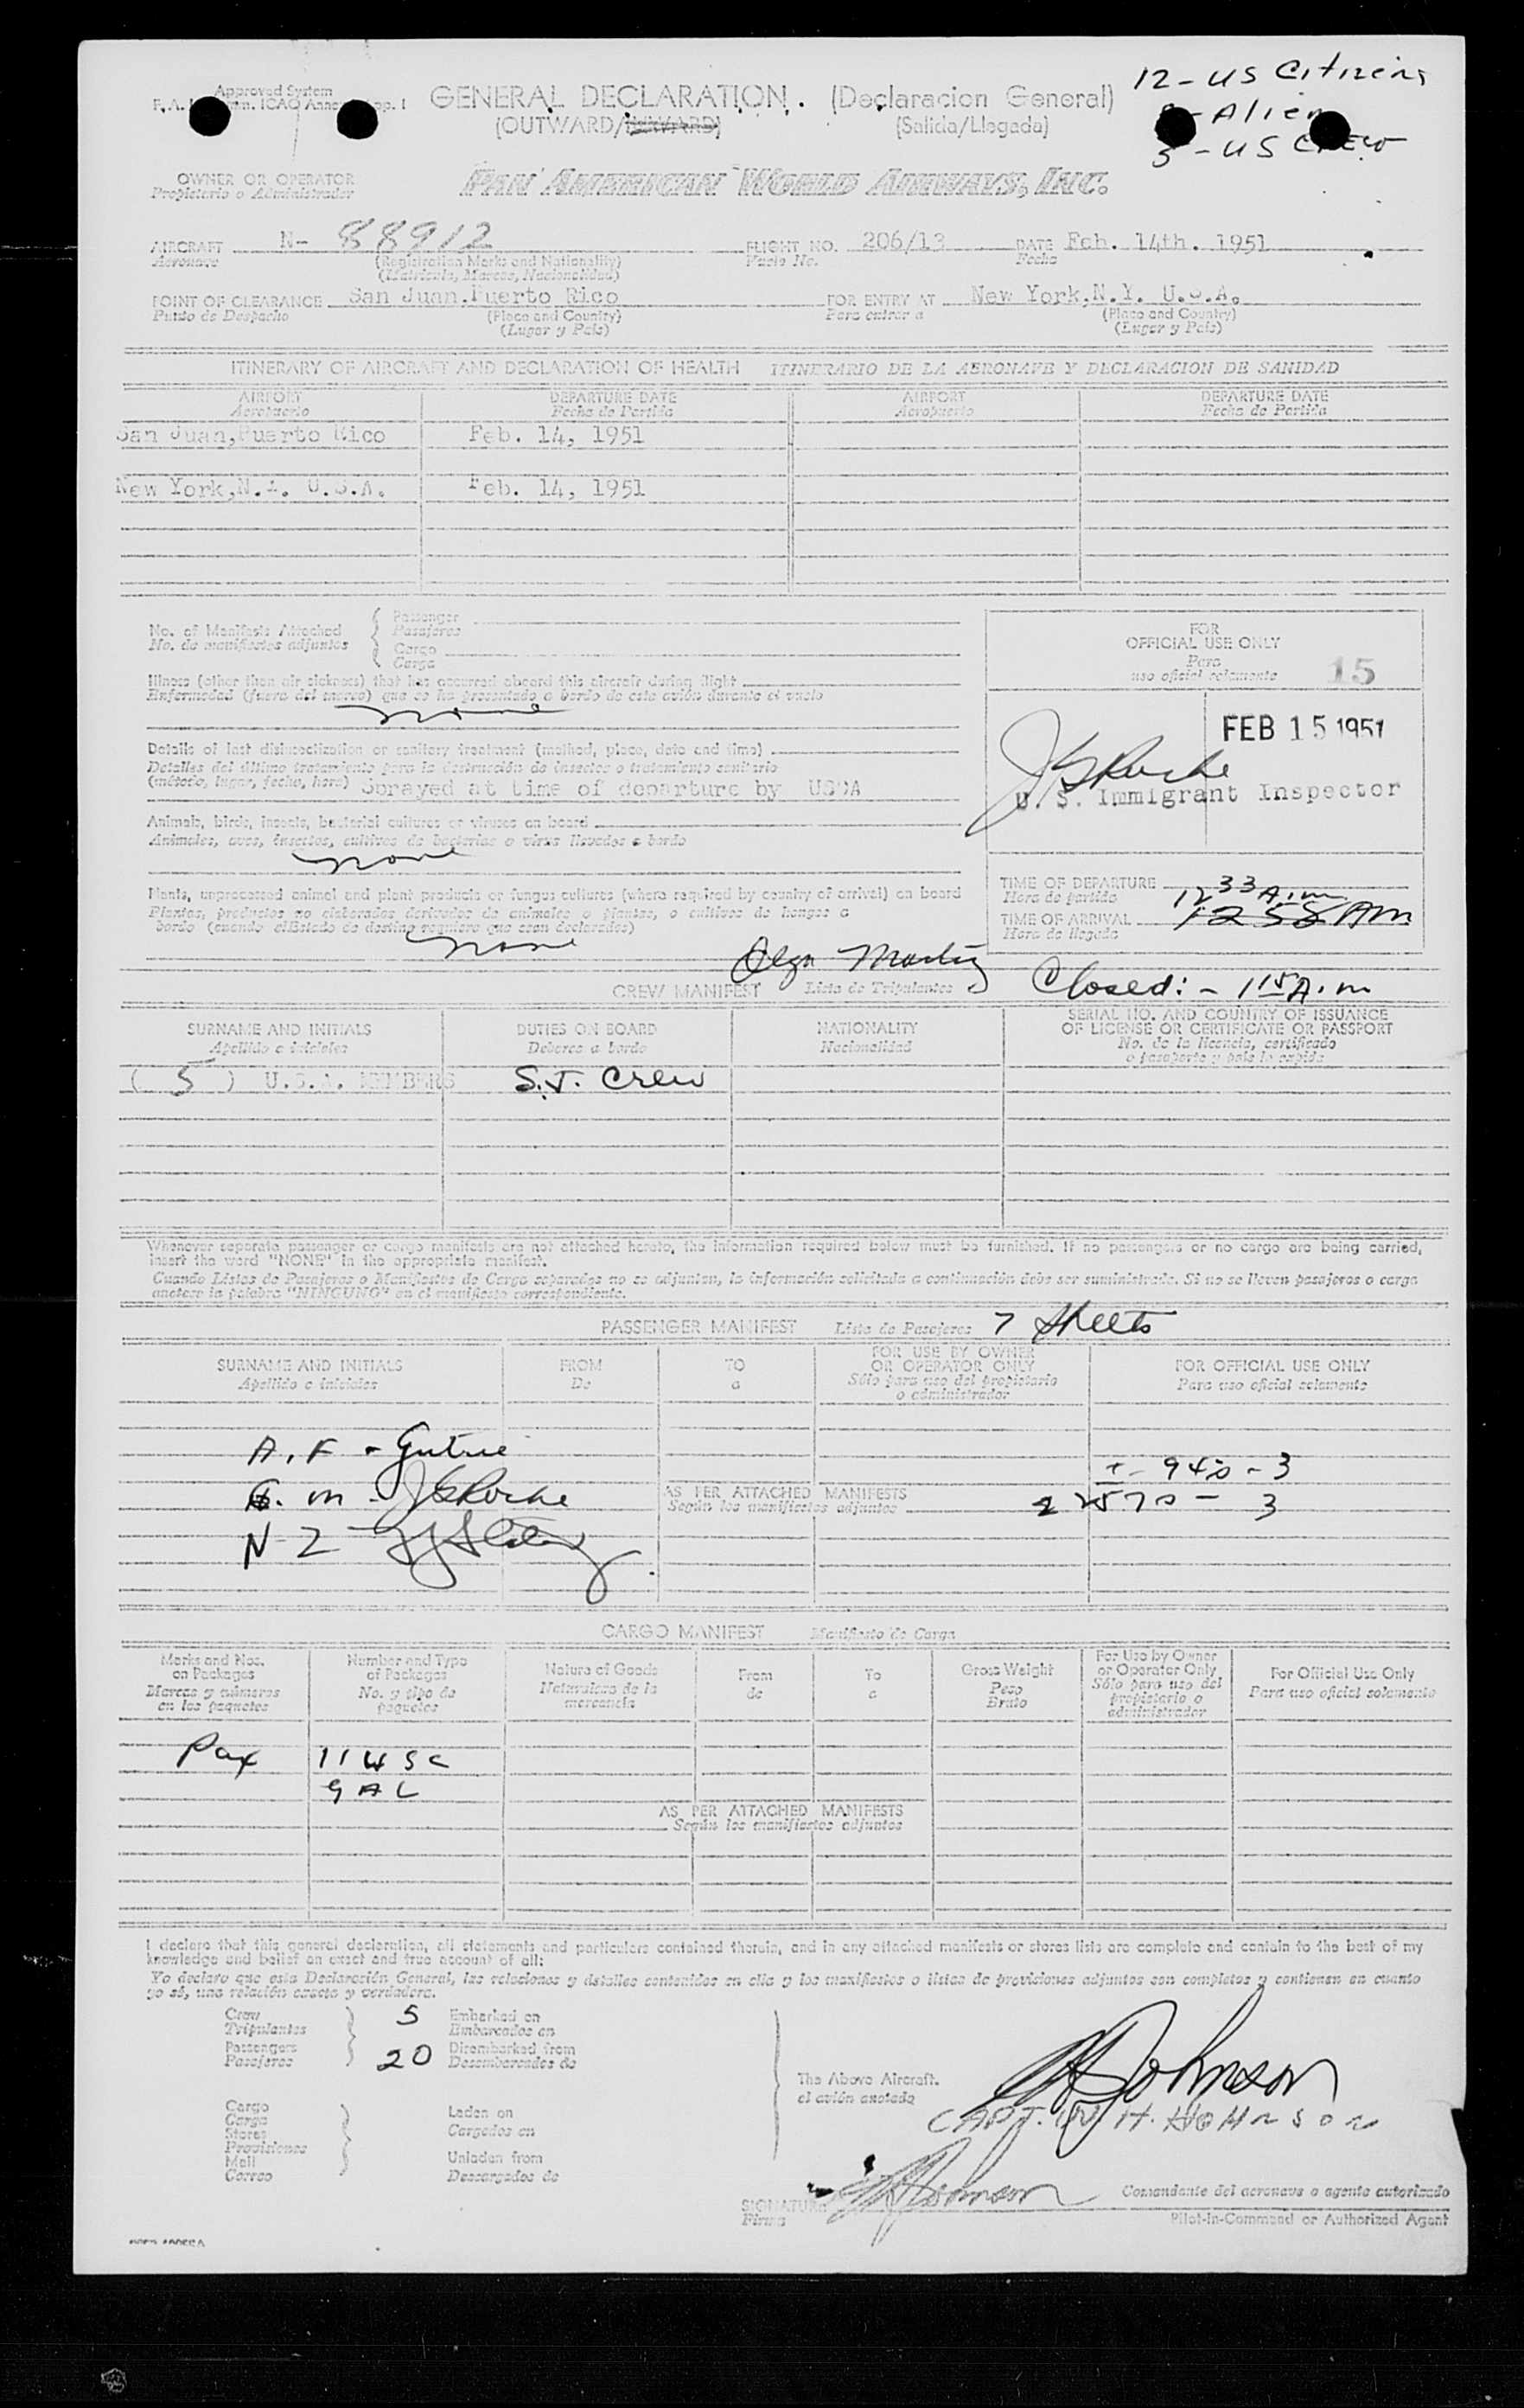 12 - US Citizens
Approved System
GENERAL DECLARATION. (Declaracion General)
- Alien
(OUTWARD/INWARD) (Salida/Llegada)
5 - US Crew
OWNER OR OPERATOR
Propietario o Administrador
PAN AMERICAN WORLD AIRWAYS, INC.
AIRCRAFT N- 88912 FLIGHT NO. 206/13 DATE Feb. 14th. 1951
Aeronave (Registration Marks and Nationality) Vuelo No. Fecha
(Matricula, Marcas, Nacionalidad)
POINT OF CLEARANCE San Juan.Puerto Rico FOR ENTRY AT New York,N.Y. U.S.A.
Punto de Despacho (Place and Country) Para entrar a (Place and Country)
(Lugar y Pais) (Lugar y Pais)
ITINERARY OF AIRCRAFT AND DECLARATION OF HEALTH ITINERARIO DE LA AERONAVE Y DECLARACION DE SANIDAD
AIRPORT DEPARTURE DATE AIRPORT DEPARTURE DATE
Aeropuerto Fecha de Partida Aeropuerto Fecha de Partida
San Juan,Puerto Rico Feb. 14, 1951
New York,N.Y. U.S.A. Feb. 14, 1951
No. of Manifests Attached Passenger
No. de manifiestos adjuntos Pasajeros
Cargo
Carga
FOR
OFFICIAL USE ONLY
Para
uso oficial solamente 15
Illness (other than air sickness) that has occurred aboard this aircraft during flight
Enfermedad (fuera del mareo) que se ha presentado a bordo de este avión durante el vuelo
none
FEB 15 1951
Details of last disinsectization or sanitary treatment (method, place, date and time)
Detalles del último tratamiento para la destrucción de insectos o tratamiento sanitario
(método, lugar, fecha, hora) Sprayed at time of departure by USDA
JGRoche
U. S. Immigrant Inspector
Animals, birds, insects, bacterial cultures or viruses on board
Animales, aves, insectos, cultivos de bacterias o virus llevados a bordo
none
Plants, unprocessed animal and plant products or fungus cultures (where required by country of arrival) on board
Plantas, productos no elaborados derivados de animales o plantas, o cultivos de hongos a
bordo (cuando elEstado de destino requiere que sean declarados)
none
TIME OF DEPARTURE 12 33 A.m
Hora de partida
TIME OF ARRIVAL 1255 AM
Hora de llegada
Olga
Closed: - 1 15 A.m
CREW MANIFEST Lista de Tripulantes
SURNAME AND INITIALS DUTIES ON BOARD NATIONALITY SERIAL NO. AND COUNTRY OF ISSUANCE
OF LICENSE OR CERTIFICATE OR PASSPORT
Apellido e iniciales Deberes a bordo Nacionalidad No. de la licencia, certificado
o pasaporte y país lo expida
( 5 ) U.S.A. MEMBERS S.J. Crew
Whenever separate passenger or cargo manifests are not attached hereto, the information required below must be furnished. If no passengers or no cargo are being carried,
insert the word "NONE" in the appropriate manifest.
Cuando Listas de Pasajeros o Manifiestos de Cargo separados no se adjuntan, la información solicitada a continuación debe ser suministrada. Si no se llevan pasajeros o carga
anotese la palabra "NINGUNO" en el manifiesto correspondiente.
PASSENGER MANIFEST Lista de Pasajeros 7 Sheets
SURNAME AND INITIALS FROM TO FOR USE BY OWNER
OR OPERATOR ONLY FOR OFFICIAL USE ONLY
Apellido e iniciales De a Sólo para uso del propietario
o administrador Para uso oficial solamente
A.F -
- 940 - 3
G. m - JGRoche
AS PER ATTACHED MANIFESTS
Según los manifiestos adjuntos
2570 - 3
N-Z
CARGO MANIFEST Manifiesto de Carga
Marks and Nos.
on Packages
Marcas y números
en los paquetes
Number and Type
of Packages
No. y tipo de
paquetes
Nature of Goods
Naturaleza de la
mercancía
From
de
To
a
Gross Weight
Peso
Bruto
For Use by Owner
or Operator Only
Sólo para uso del
propietario o
administrador
For Official Use Only
Para uso oficial solamente
Pax 11 USC
9 AL
AS PER ATTACHED MANIFESTS
Según los manifiestos adjuntos
I declare that this general declaration, all statements and particulars contained therein, and in any attached manifests or stores lists are complete and contain to the best of my
knowledge and belief an exact and true account of all:
Yo declaro que esta Declaración General, las relaciones y detalles contenidos en ella y los manifiestos o listas de provisiones adjuntos son completos y contienen en cuanto
yo sé, una relación exacta y verdadera.
Crew 5 Embarked on
Tripulantes Embarcados en
Passengers 20 Disembarked from
Pasajeros Desembarcados de
The Above Aircraft.
el avión anotado
WHJohnson
CAPT. W H. JOHNSON
Cargo
Carga
Stores
Provisiones
Mail
Correo
Laden on
Cargados en
Unladen from
Descargados de
SIGNATURE WHJohnson
Firma
Comandante del aeronave o agente autorizado
Pilot-in-Command or Authorized Agent